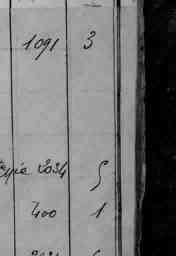 1091 3
2034 5
400 1